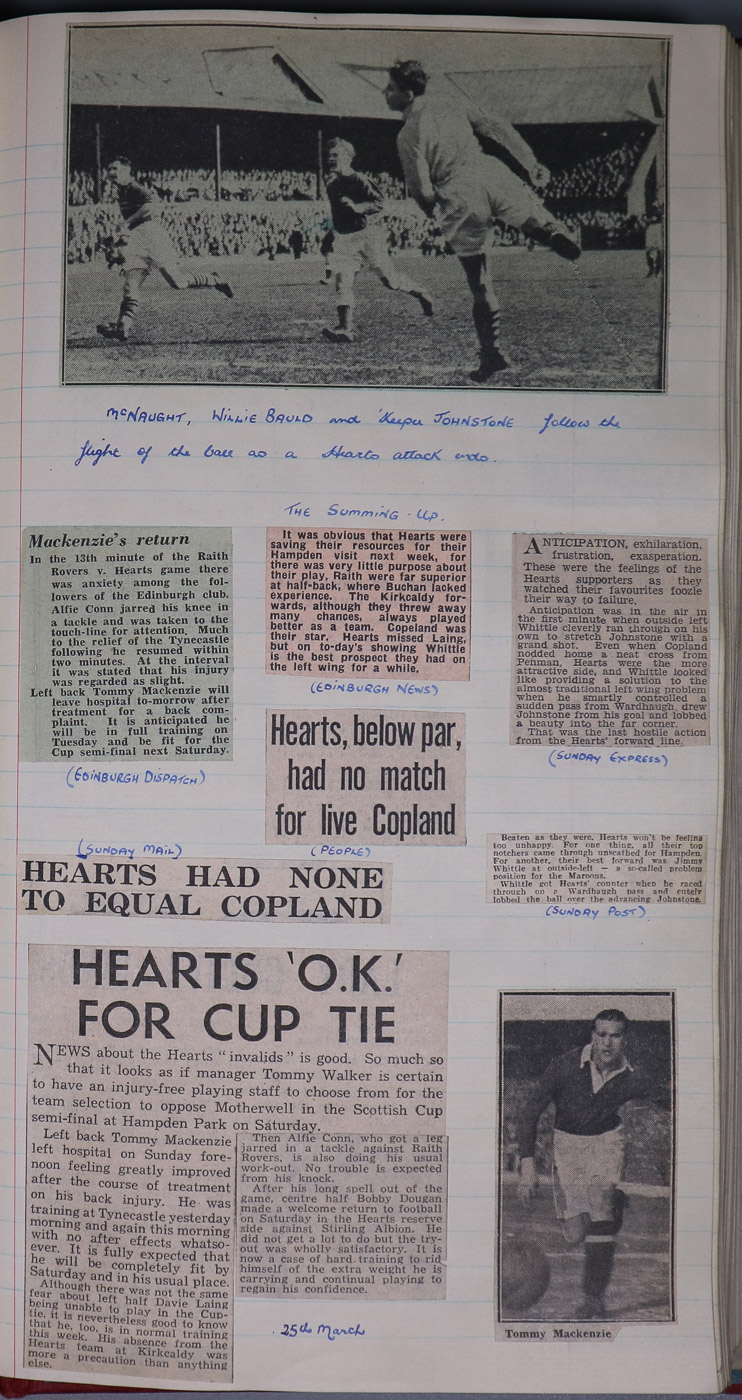 McNAUGHT, WILLIE BAULD and 'Keeper JOHNSTONE follow the
flight of the ball as a Hearts attack ends.
THE SUMMING-UP.
Mackenzie's return
In the 13th minute of the Raith
Rovers v. Hearts game there
was anxiety among the fol-
lowers of the Edinburgh club.
Alfie Conn jarred his knee in
a tackle and was taken to the
touch-line for attention. Much
to the relief of the Tynecastle
following he resumed within
two minutes. At the interval
it was stated that his injury
was regarded as slight.
Left back Tommy Mackenzie will
leave hospital to-morrow after
treatment for a back com-
plaint. It is anticipated he
will be in full training on
Tuesday and be fit for the
Cup semi-final next Saturday.
(EDINBURGH DISPATCH)
It was obvious that Hearts were
saving their resources for their
Hampden visit next week, for
there was very little purpose about
their play, Raith were far superior
at half-back, where Buchan lacked
experience. The Kirkcaldy for-
wards, although they threw away
many chances, always played
better as a team. Copeland was
their star. Hearts missed Laing,
but on to-day's showing Whittle
is the best prospect they had on
the left wing for a while.
(EDINBURGH NEWS)
Hearts, below par,
had no match
for live Copland
(PEOPLE)
ANTICIPATION, exhilaration,
frustration, exasperation.
These were the feelings of the
Hearts supporters as they
watched their favourites foozle
their way to failure.
Anticipation was in the air in
the first minute when outside left
Whittle cleverly ran through on his
own to stretch Johnstone with a
grand shot. Even when Copland
nodded home a neat cross from
Penman, Hearts were the more
attractive side, and Whittle looked
like providing a solution to the
almost traditional left wing problem
when he smartly controlled a
sudden pass from Wardhaugh, drew
Johnstone from his goal and lobbed
a beauty into the far corner.
That was the last hostile action
from the Hearts' forward line.
(SUNDAY EXPRESS)
(SUNDAY MAIL)
HEARTS HAD NONE
TO EQUAL COPLAND
Beaten as they were, Hearts won't be feeling
too unhappy. For one thing, all their top
notchers came through unscathed for Hampden.
For another, their best forward was Jimmy
Whittle at outside-left — a so-called problem
position for the Maroons.
Whittle got Hearts' counter when he raced
through on a Wardhaugh pass and cutely
lobbed the ball over the advancing Johnstone.
(SUNDAY POST)
HEARTS 'O.K.'
FOR CUP TIE
NEWS about the Hearts "invalids" is good. So much so
that it looks as if manager Tommy Walker is certain
to have an injury-free playing staff to choose from for the
team selection to oppose Motherwell in the Scottish Cup
semi-final at Hampden Park on Saturday.
Left back Tommy Mackenzie
left hospital on Sunday fore-
noon feeling greatly improved
after the course of treatment
on his back injury. He was
training at Tynecastle yesterday
morning and again this morning
with no after effects whatso-
ever. It is fully expected that
he will be completely fit by
Saturday and in his usual place.
Although there was not the same
fear about left half Davie Laing
being unable to play in the Cup-
tie, it is nevertheless good to know
that he, too, is in normal training
this week. His absence from the
Hearts team at Kirkcaldy was
more a precaution than anything
else.
Then Alfie Conn, who got a leg
jarred in a tackle against Raith
Rovers, is also doing his usual
work-out. No trouble is expected
from his knock.
After his long spell out of the
game, centre half Bobby Dougan
made a welcome return to football
on Saturday in the Hearts reserve
side against Stirling Albion. He
did not get a lot to do but the try-
out was wholly satisfactory. It is
now a case of hard training to rid
himself of the extra weight he is
carrying and continual playing to
regain his confidence.
25th March
Tommy Mackenzie